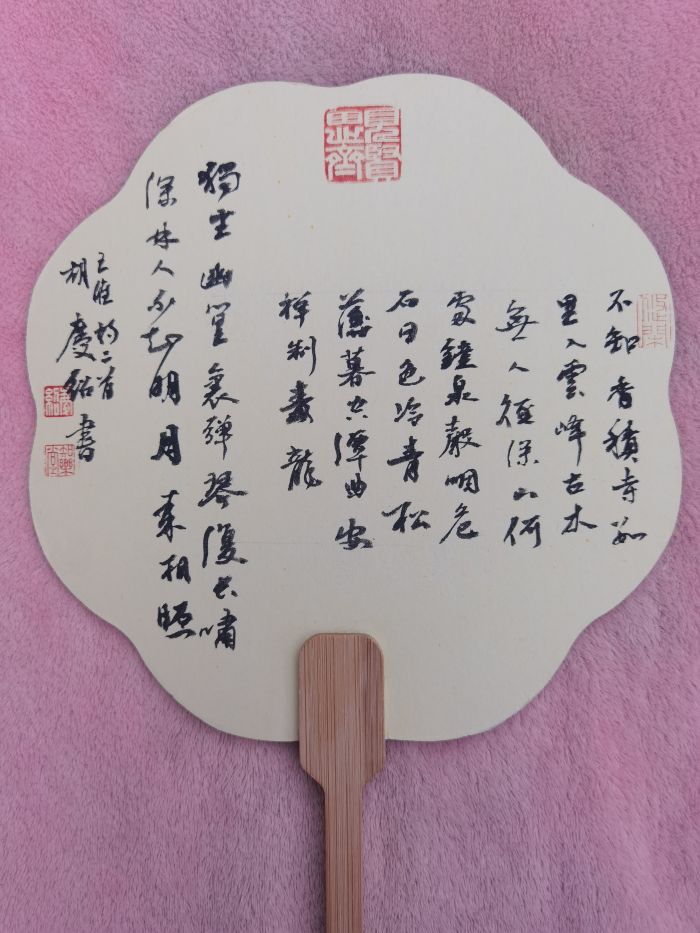 見賢
思齊
不知香積寺數
里入雲峰古木
無人徑深山何
處鐘泉聲咽危
石日色冷青松
薄暮空潭曲安
禪制毒龍
獨坐幽篁裏彈琴復長嘯
深林人不知明月來相照
王維詩二首
胡慶紹書